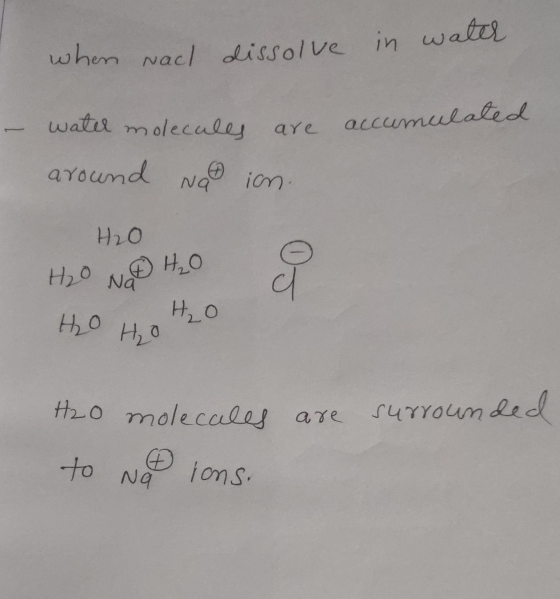 when Nacl dissolve in water
- water molecules are accumulated
around Na⊕ ion.
H2O
H2O Na⊕ H2O ⊖
Cl
H2O H2O H2O
H2O molecules are surrounded
to Na⊕ ions.